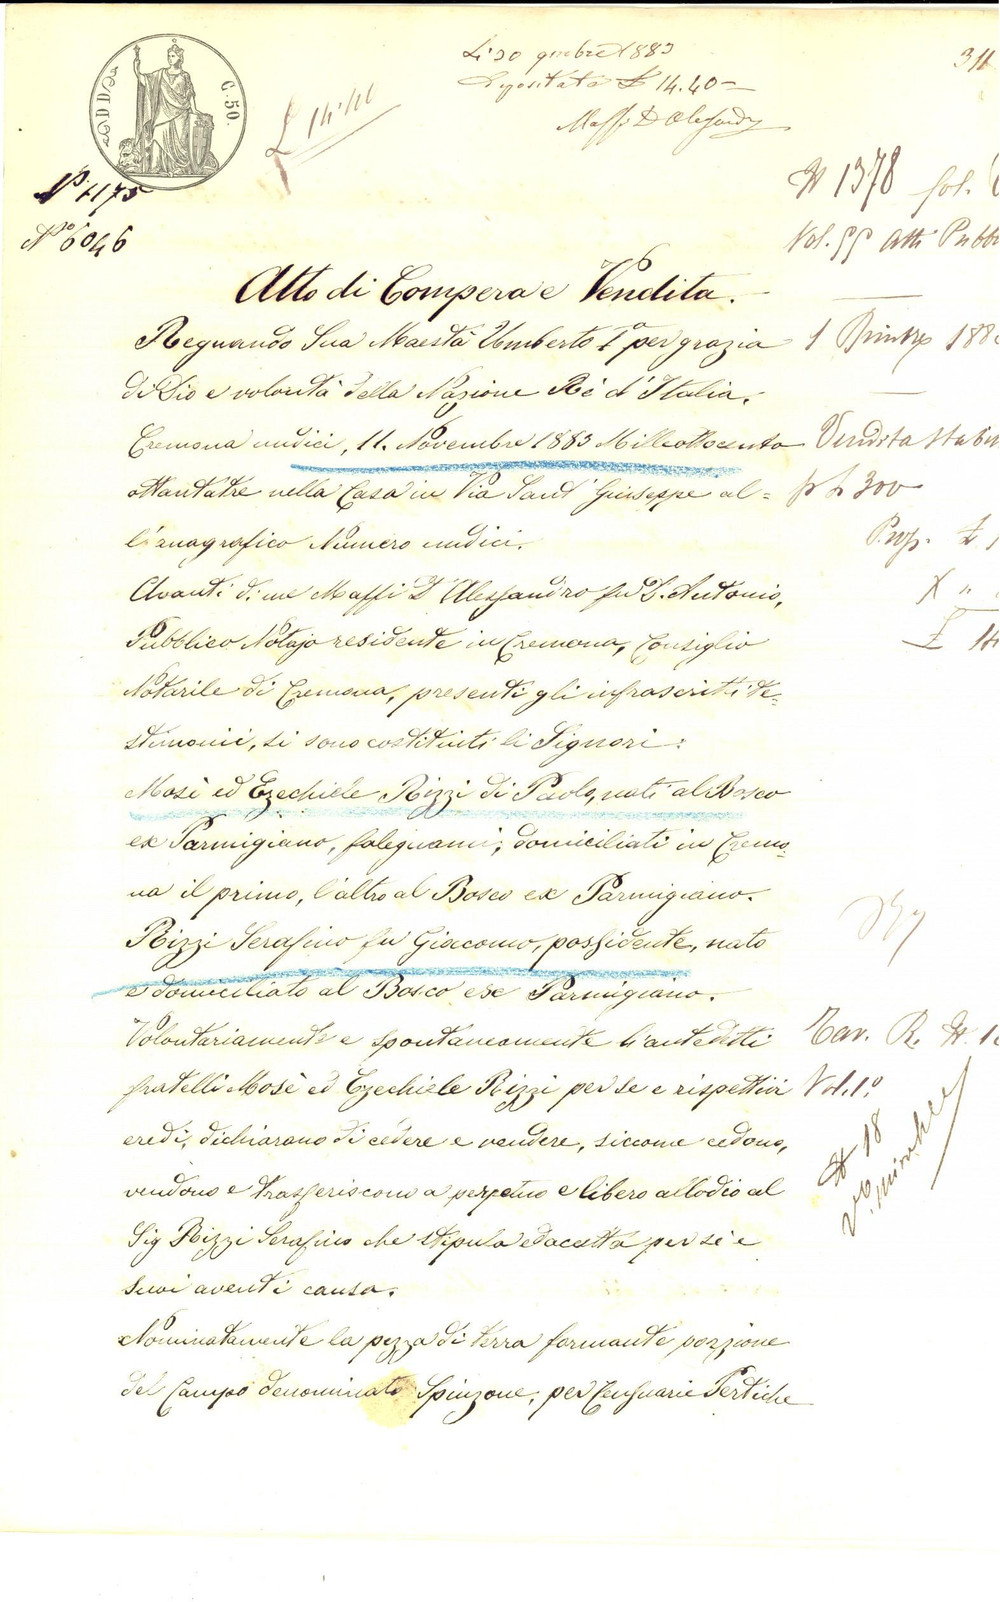 C. 50.
Li 30 9mbre 1883
Depositate £ 14.40 =
Maffi Dr Alessandro
£ 14.40
311
N° 1175
N° 6046
N 1378 fol.
Vol. 55 Atti Pubb
Atto di Compera e Vendita.
Regnando Sua Maestà Umberto 1° per grazia
di Dio e volontà della Nazione Rè d'Italia.
Cremona undici, 11. Novembre 1883 Milleottocento
ottantatre nella Casa in Via Sant' Giuseppe al=
l'anagrafico Numero undici.
Avanti di me Maffi Dr Alessandro fu Dr. Antonio,
Pubblico Notajo residente in Cremona, Consiglio
Notarile di Cremona, presenti gli infrascritti te=
stimonii, si sono costituiti li Signori:
Mosè ed Ezechiele Rizzi di Paolo, nati al Bosco
ex Parmigiano, falegnami, domiciliati in Cremo=
na il primo, l'altro al Bosco ex Parmigiano.
Rizzi Serafino fu Giacomo, possidente, nato
e domiciliato al Bosco ex Parmigiano.
Volontariamente e spontaneamente li antedetti
fratelli Mosè ed Ezechiele Rizzi per se e rispettivi
eredi, dichiarano di cedere e vendere, siccome cedono,
vendono e trasferiscono a perpetuo e libero allodio al
Sig Rizzi Serafino che stipula ed accetta per sè e
suoi aventi causa.
Nominatamente la pezza di terra formante porzione
del Campo denominato Spinzone, per Censuarie Pertiche
1 188
Vendita stab
p £ 300
Prop. £ 1
£ 14
Tav. R. N. 1
Vol. 1°
N 18